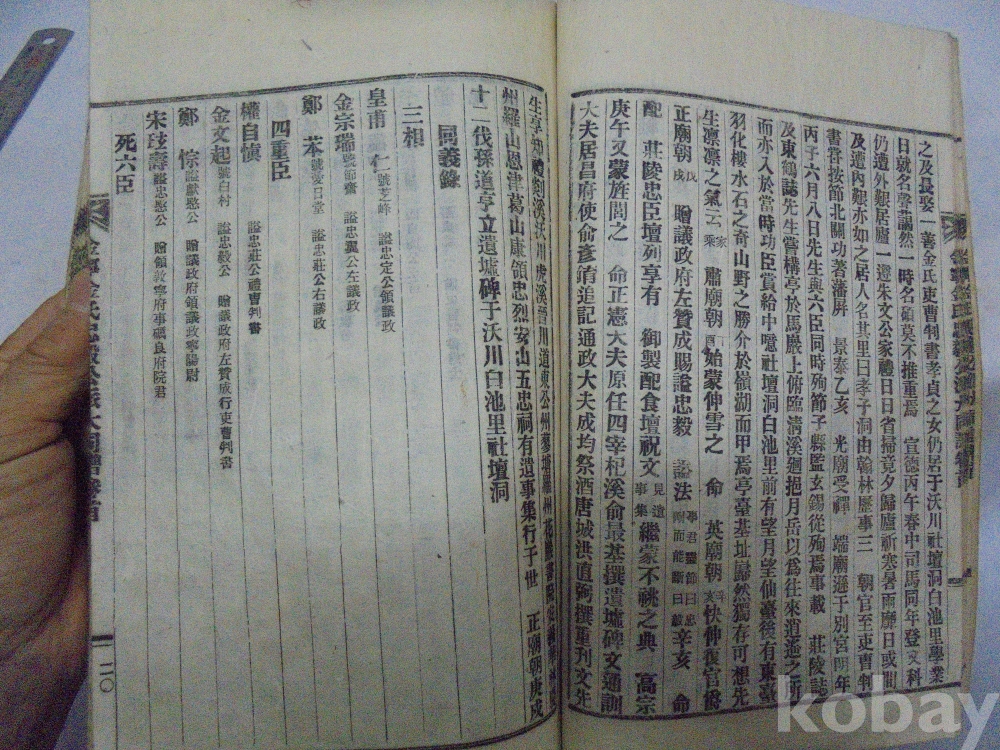 之及長娶 善金氏吏曹判書孝貞之女仍居于沃川社壇洞白池里學業
日就名聲藹然一時名碩莫不推重焉 宣德丙午春中司馬同年登文科
仍遭外艱居廬一遵朱文公家禮日日省掃竟夕歸廬祈寒暑雨靡日或間
及遭內艱亦如之居人名其里曰孝子洞由翰林歷事三 朝官至吏曹判
書嘗按節北關功著藩屛 景泰乙亥 光廟受禪 端廟遜于別宮明年
丙子六月八日先生與六臣同時殉節子縣監玄錫從殉焉事載 莊陵誌
及東鶴誌先生嘗構亭於馬巖上俯臨淸溪廻挹月岳以爲往來逍遙之所
而亦入於當時功臣賞給中噫社壇洞白池里前有望月望仙臺後有東臺
羽化樓水石之奇山野之勝介於嶺湖而甲焉亭臺基址巋然獨存可想先
生凛凛之氣 肅廟朝 始蒙伸雪之 命 英廟朝 快伸復官爵
正廟朝 戊戌 贈議政府左贊成賜謚忠毅 謚法 辛亥 命
配 莊陵忠臣壇列享有 御製配食壇祝文 見遺事集 繼蒙不祧之典 高宗
庚午又蒙旌閭之 命正憲大夫原任四宰杞溪俞最基撰遺墟碑文通訓
大夫居昌府使俞彦 追記通政大夫成均祭酒唐城洪直弼撰重刊文先
州羅山恩津葛山康領忠烈安山五忠祠有遺事集行于世 正廟朝庚戌
十一代孫道亨立遺墟碑于沃川白池里社壇洞
同義錄
三相
皇甫 仁 號芝峰 謚忠定公領議政
金宗瑞 號節齋 謚忠翼公左議政
鄭 苯 號 日堂 謚忠莊公右議政
四重臣
權自愼 謚忠莊公禮曹判書
金文起 號白村 謚忠毅公 贈議政府左贊成行吏曹判書
鄭 悰 謚獻愍公 贈議政府領議政寧陽尉
宋玹壽 謚忠愍公 贈領敦寧府事礪良府院君
死六臣
二〇
kobay